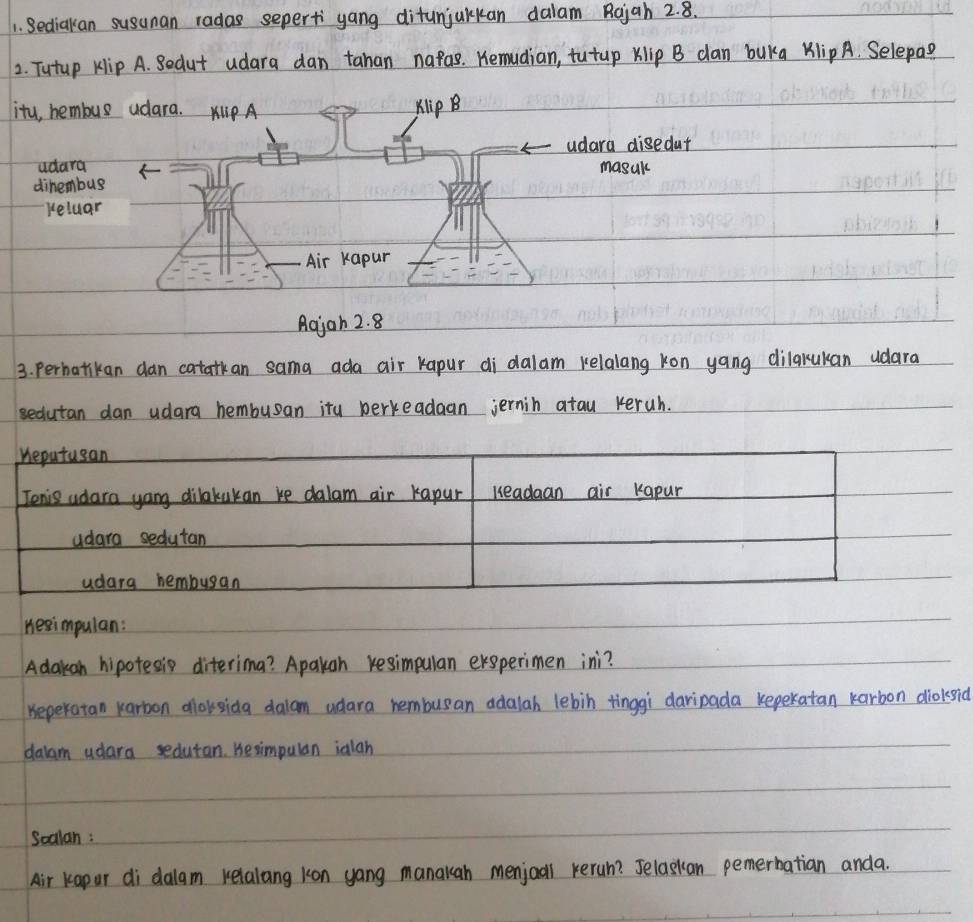 1. Sediakan susunan radas seperti yang ditunjukkan dalam Rajah 2.8.
2. Tutup klip A. Sedut udara dan tahan nafas. Kemudian, tutup klip B dan buka klip A. Selepas
itu, hembus udara.
Klip A
Klip B
udara disedut
masuk
udara
dihembus
keluar
Air kapur
Rajah 2.8
3. Perhatikan dan catatkan sama ada air kapur di dalam kelalang kon yang dilakukan udara
sedutan dan udara hembusan itu berkeadaan jernih atau keruh.
Keputusan
Jenis udara yang dilakukan ke dalam air kapur
Keadaan air kapur
udara sedutan
udara hembusan
Kesimpulan:
Adakah hipotesis diterima? Apakah kesimpulan eksperimen ini?
Kepekatan karbon dioksida dalam udara hembusan adalah lebih tinggi daripada kepekatan karbon dioksid
dalam udara sedutan. Kesimpulan ialah
Soalan:
Air kapur di dalam kelalang kon yang manakah menjadi keruh? Jelaskan pemerhatian anda.